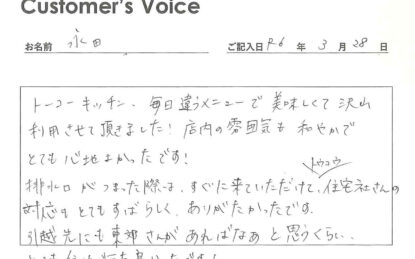 Customer's Voice
お名前 永田 ご記入日 R6 年 3 月 28 日
トーコーキッチン、毎日違うメニューで美味しくて沢山
利用させて頂きました!店内の雰囲気も和やかで
とても心地よかったです!
トウコウ
排水口がつまった際は、すぐに来ていただけて、住宅社さんの
対応もとてもすばらしく、ありがたかったです。
引越先にも東神さんがあればなぁと思うくらい、